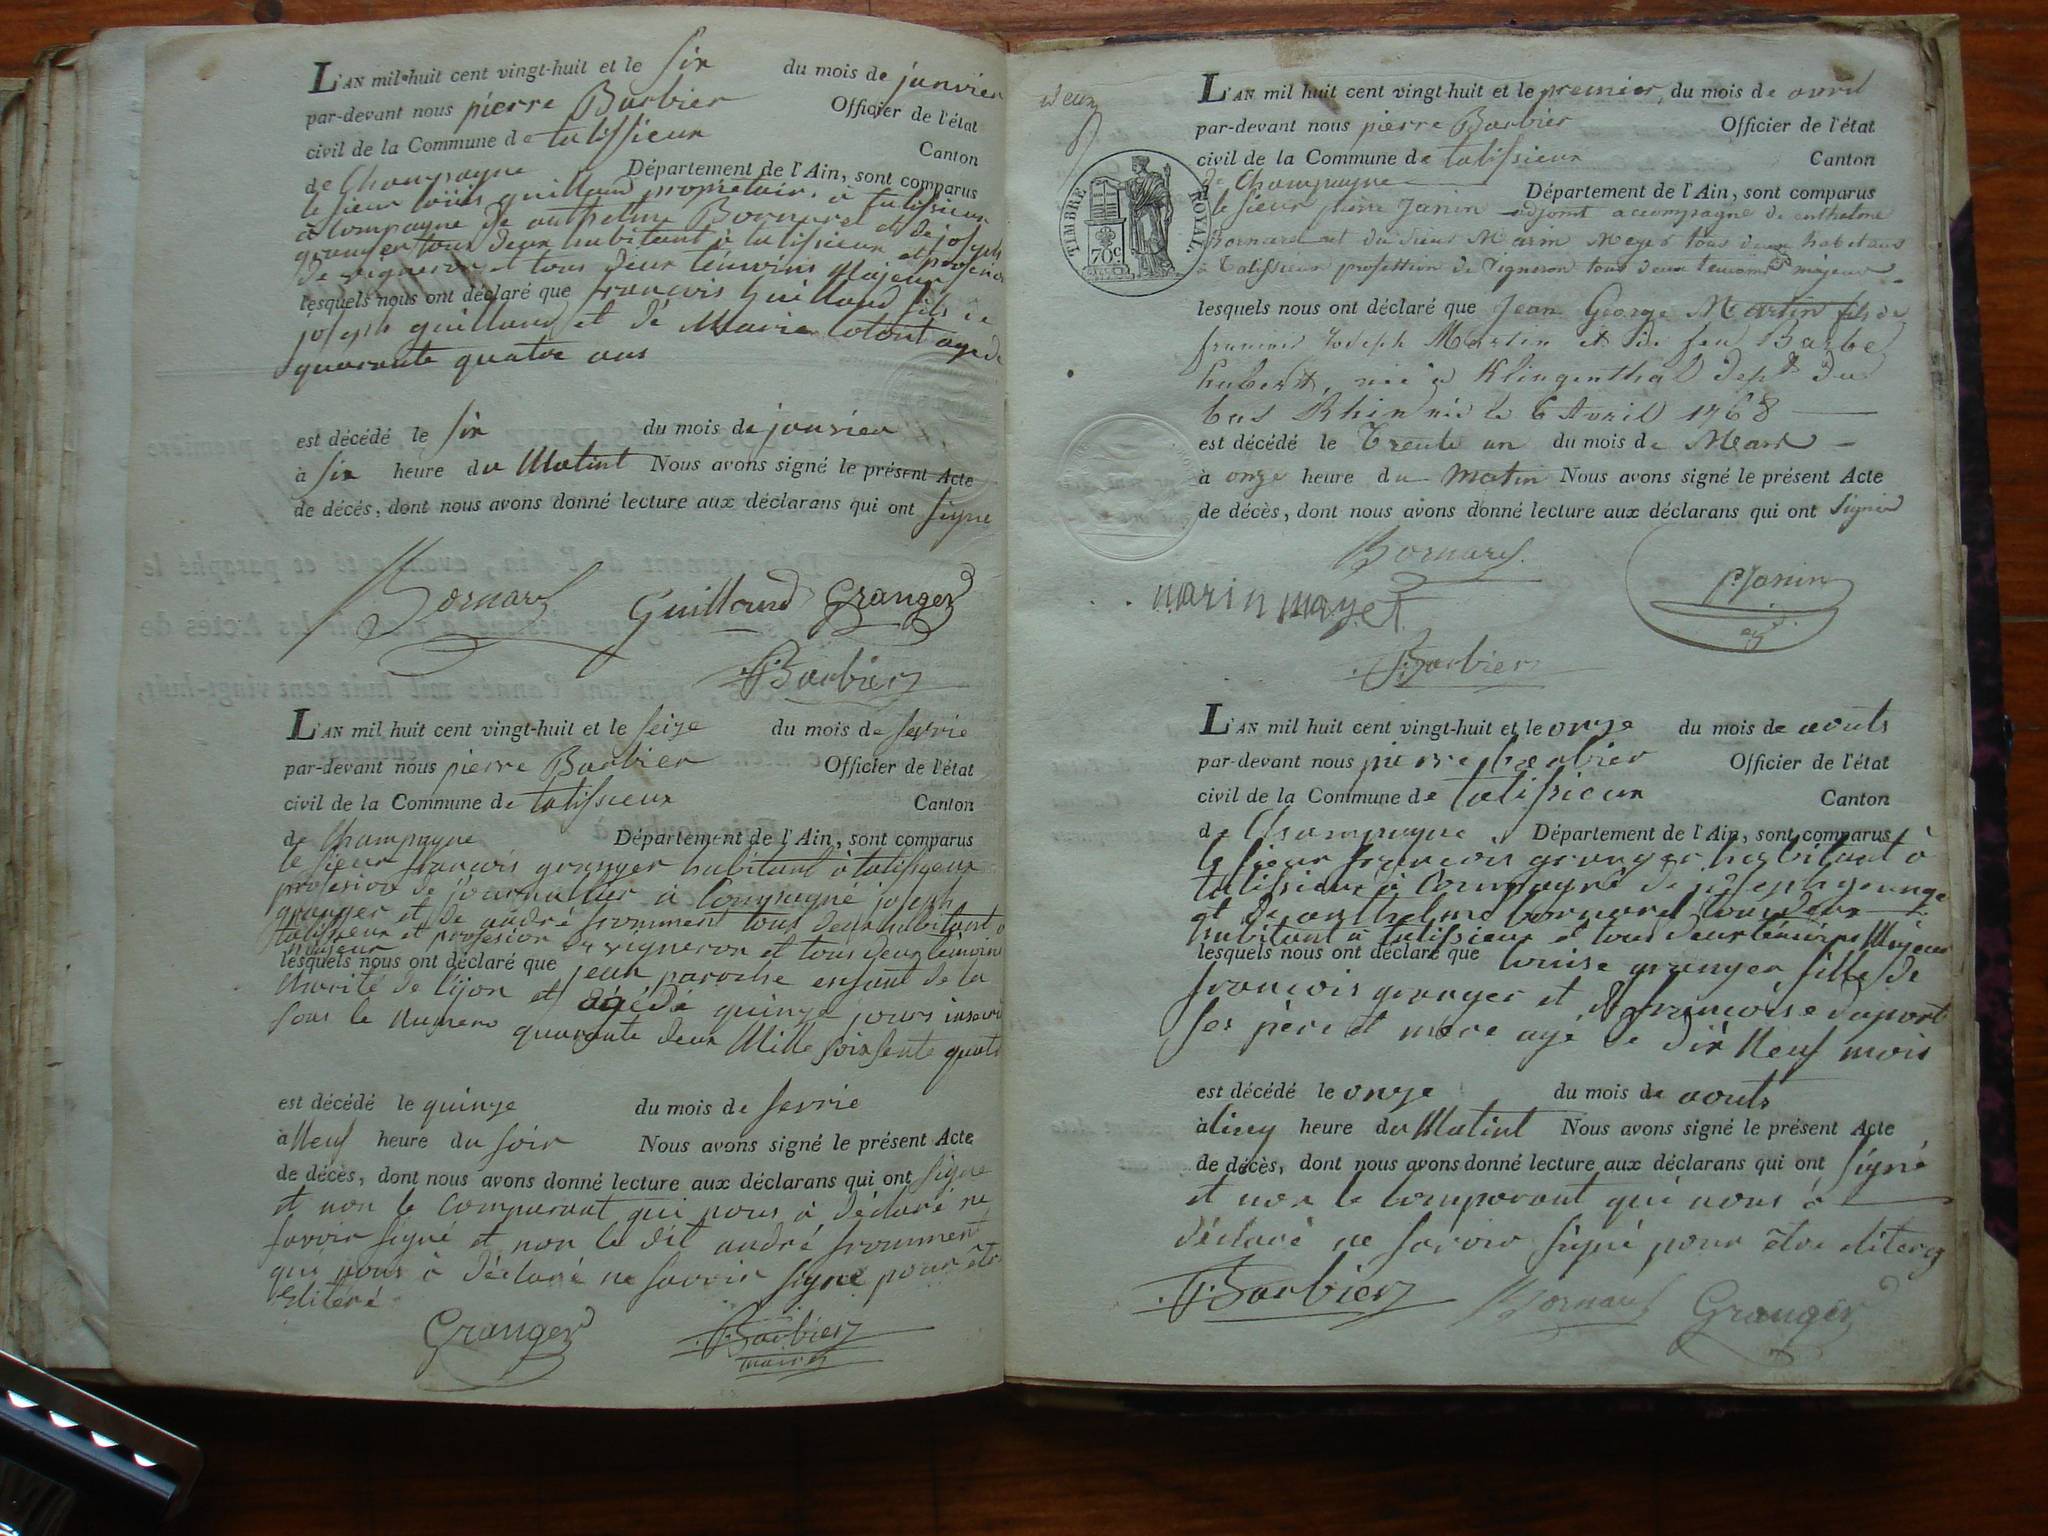 L'AN mil huit cent vingt-huit et le six du mois de janvier
par-devant nous pierre Barbier Officier de l'état
civil de la Commune de talissieux Canton
de Champagne Département de l'Ain, sont comparus
le sieur louis guilland propriétair. à talissieux
a compagne de anthelme Bornard et de joseph
granger tous deux habitant à talissieux et profesion
de vigneron et tous deux témoins Majeur
lesquels nous ont déclaré que françois Guilland fils de
joseph guilland et de Marie agé de
quarante quatre ans
est décédé le six du mois de janvier
à six heure du Matint Nous avons signé le présent Acte
de décés, dont nous avons donné lecture aux déclarans qui ont signe
Bornard Guilland Granger
P. Barbier
L'AN mil huit cent vingt-huit et le seize du mois de fevrié
par-devant nous pierre Barbier Officier de l'état
civil de la Commune de talissieux Canton
de Champagne Département de l'Ain, sont comparus
le sieur francois granger habitant à talissieux
profesion de journallier à Compagné joseph
granger et de andré fromment tous deux habitant à
talissieux et profesion de vigneron et tous deux témoins
majeur
lesquels nous ont déclaré que jean paroche enfant de la
charité de lyon et agé de quinze jours inscri
sous le numero quarante deux Mille soixsente quatr
est décédé le quinze du mois de fevrie
à Neuf heure du soir Nous avons signé le présent Acte
de décès, dont nous avons donné lecture aux déclarans qui ont signe
et non le Comparant qui nous à déclaré ne
savoir signé et non le dit andré fromment
qui nous à déclaré ne savoir signe pour être
éliteré
Granger P. Barbier
maire
deux
TIMBRE ROYAL.
70c
L'AN mil huit cent vingt-huit et le premier, du mois de avril
par-devant nous pierre Barbier Officier de l'état
civil de la Commune de talissieux Canton
de Champagne Département de l'Ain, sont comparus
le sieur pierre Janin adjoint accompagne de anthelme
Bornard et du sieur Marin Mayet tous deux habitans
à Talissieux profession de Vigneron tous deux temoins majeur
lesquels nous ont déclaré que Jean George Martin fils de
francois Joseph Martin et de feu Barbe
hubert, née a Klingenthal dept. du
bas Rhin née le 6 Avril 1768
est décédé le Trente un du mois de Mars
à onze heure du Matin Nous avons signé le présent Acte
de décès, dont nous avons donné lecture aux déclarans qui ont Signé
Bornard
P. Janin
marin mayet
P. Barbier
L'AN mil huit cent vingt-huit et le onze du mois de aouts
par-devant nous pierre barbier Officier de l'état
civil de la Commune de talissieux Canton
de Champagne Département de l'Ain, sont comparus
le sieur francois granger habitant à
talissieux à Compagné de joseph grange
et de anthelme bornard tous deux
habitant à talissieux et tous deux témoins Majeur
lesquels nous ont déclaré que louise granger fille de
francois granger et de françoise duport
ses père et mere agé de dix Neuf mois
est décédé le onze du mois de aouts
à cinq heure du Matint Nous avons signé le présent Acte
de décès, dont nous avons donné lecture aux déclarans qui ont signé
et non le comparant qui nous à
déclaré ne savoir signé pour être
P. Barbier Bornard Granger